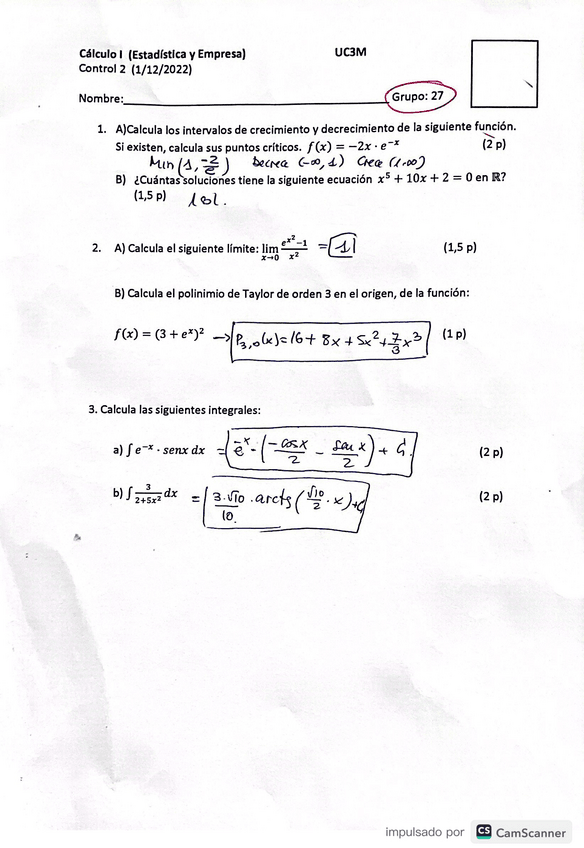 Cálculo I (Estadística y Empresa) UC3M
Control 2 (1/12/2022)
Nombre:____________________ Grupo: 27
1. A)Calcula los intervalos de crecimiento y decrecimiento de la siguiente función.
Si existen, calcula sus puntos críticos. f(x) = −2x · e^{−x} (2 p)
Min (1, -2/e) Decrece (-∞, 1) Crece (1, ∞)
B) ¿Cuántas soluciones tiene la siguiente ecuación x⁵ + 10x + 2 = 0 en ℝ?
(1,5 p) 1 sol.
2. A) Calcula el siguiente límite: lim_{x→0} (e^{x²}−1)/x² = 1 (1,5 p)
B) Calcula el polinimio de Taylor de orden 3 en el origen, de la función:
f(x) = (3 + e^x)² → P_{3,0}(x) = 16 + 8x + 5x² + 7/3 x³ (1 p)
3. Calcula las siguientes integrales:
a) ∫ e^{−x} · senx dx = e^{-x} · (-cos x/2 - sen x/2) + C (2 p)
b) ∫ 3/(2+5x²) dx = 3·√10/10 · arctg(√10/2 · x) + C (2 p)
impulsado por CS CamScanner